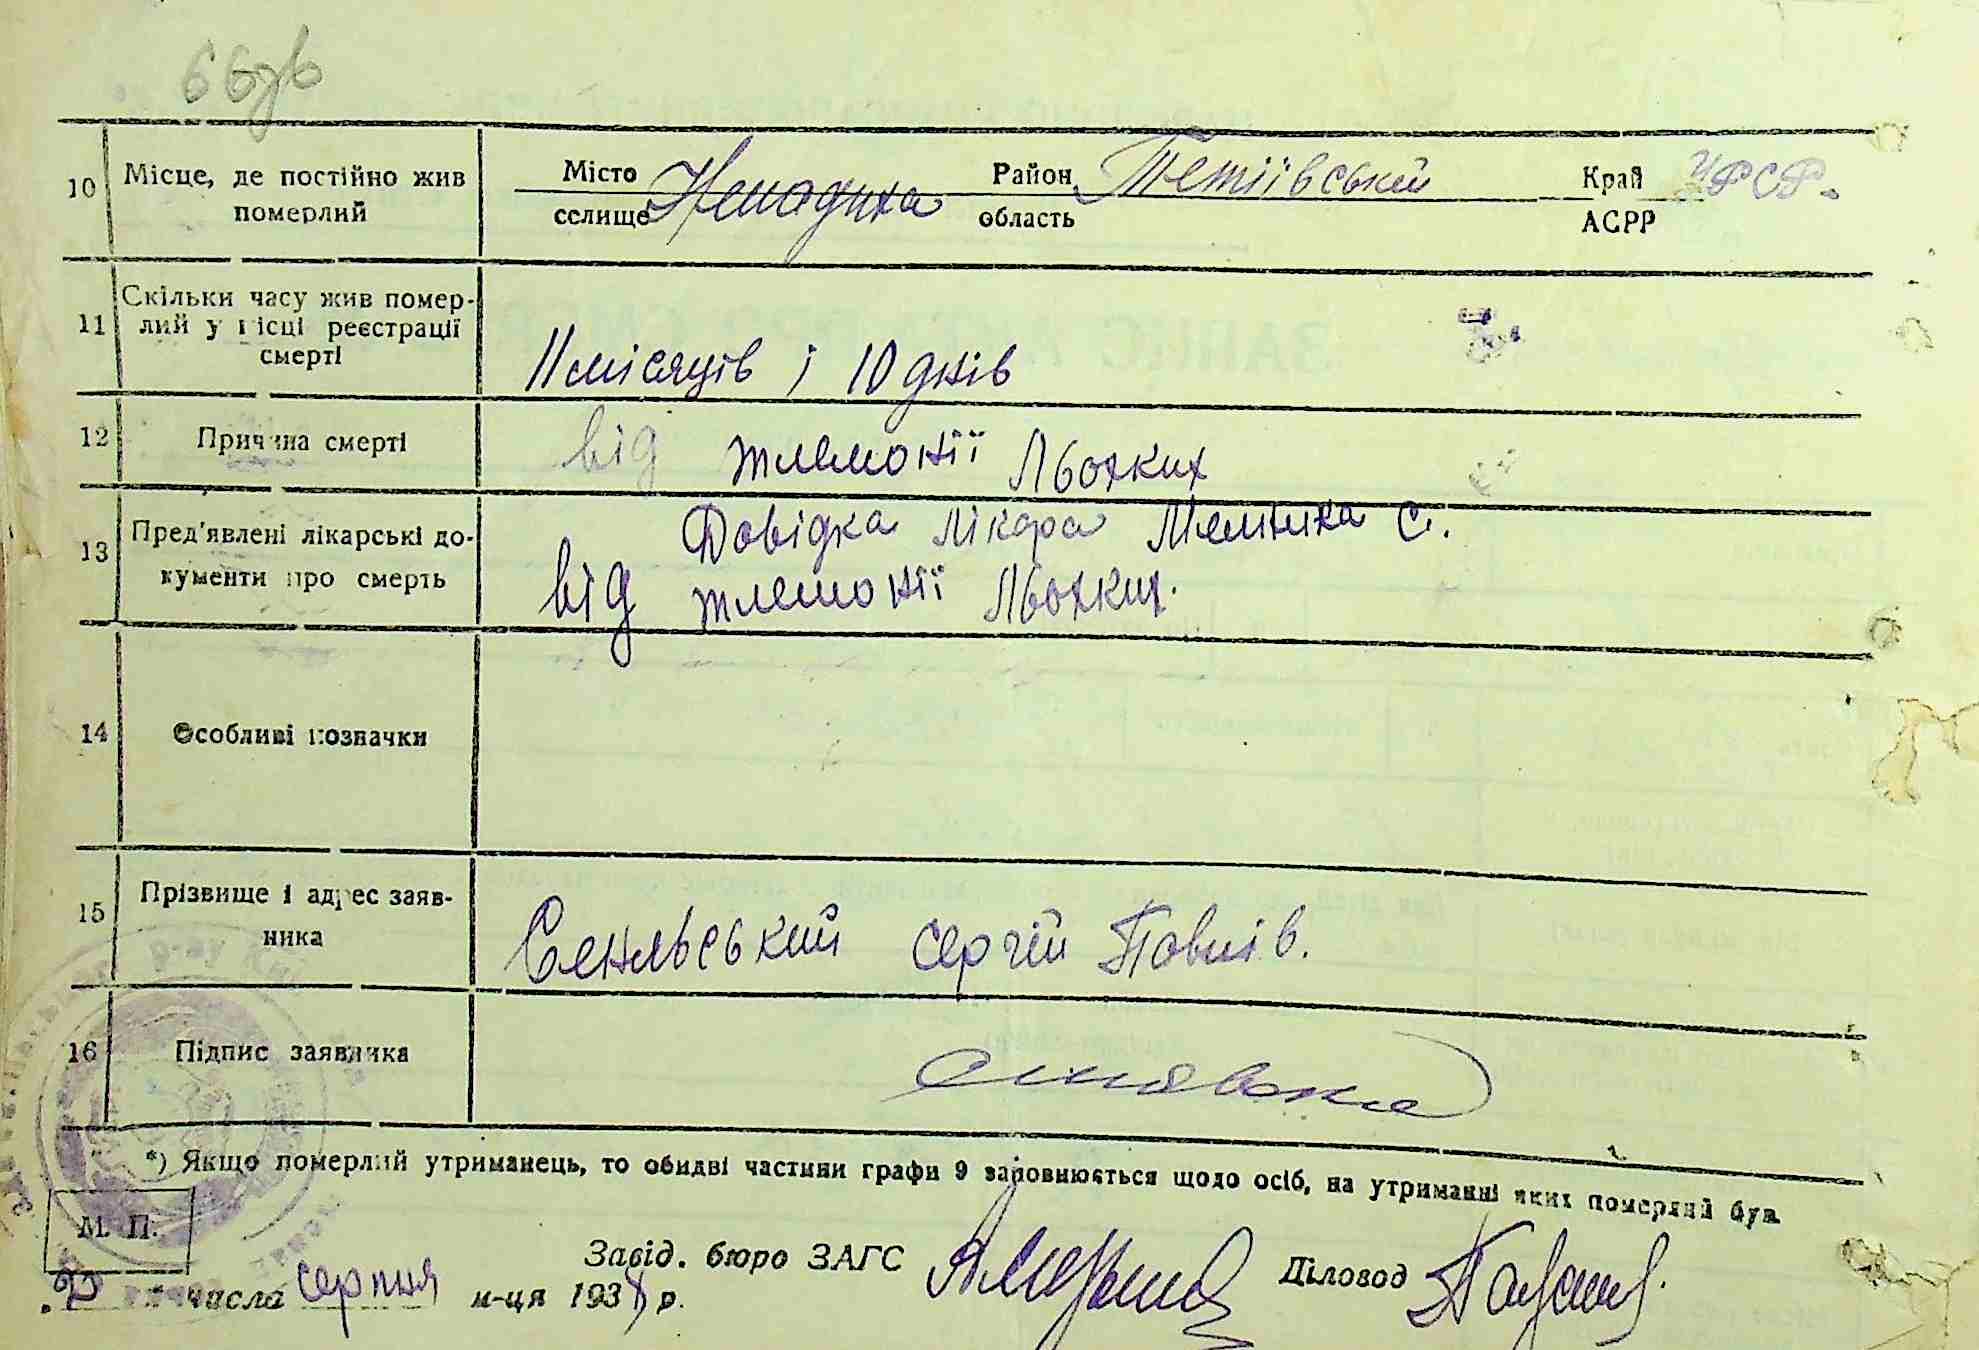 66зв
10 Місце, де постійно жив Місто Район Тетіївський Край УРСР.
померлий селище Ненадиха область АСРР
11 Скільки часу жив помер-
лий у місці реєстрації
смерті 11 місяців і 10 днів
12 Причина смерті від племонії Льохких
13 Пред'явлені лікарські до- Довідка Лікара Мельника С.
кументи про смерть від племонії Льохких.
14 Особливі позначки
15 Прізвище і адрес заяв-
ника Сергій Павлів.
16 Підпис заявника
*) Якщо померлий утриманець, то обидві частини графи 9 заповнюється щодо осіб, на утриманні яких померлий був.
М. П.
Завід. бюро ЗАГС Діловод
числа серпня м-ця 193 р.